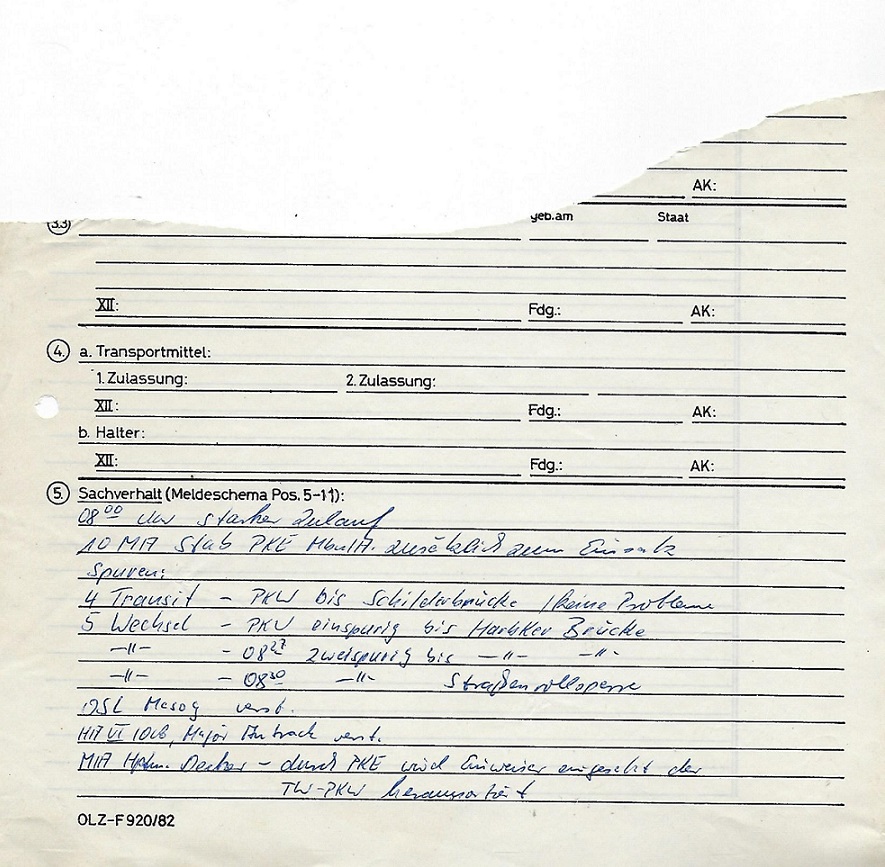 AK:
3.3) geb.am Staat
XII: Fdg.: AK:
4. a. Transportmittel:
1. Zulassung: 2. Zulassung:
XII: Fdg.: AK:
b. Halter:
XII: Fdg.: AK:
5. Sachverhalt (Meldeschema Pos. 5-11):
08⁰⁰ Uhr starker Zulauf
10 MA Stab PKE zusätzlich zum Einsatz
Spuren:
4 Transit - PKW bis Schilderbrücke / keine Probleme
5 Wechsel - PKW einspurig bis Harbker Brücke
-"- - 08²⁷ zweispurig bis -"- -"-
-"- - 08³⁰ -"- Straßenrollsperre
verst.
Major verst.
MA Hptm. Decker - durch PKE wird Einweiser eingesetzt der
TW-PKW heraussortiert
OLZ-F 920/82